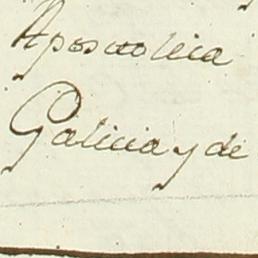 Apostolica
Galicia y de